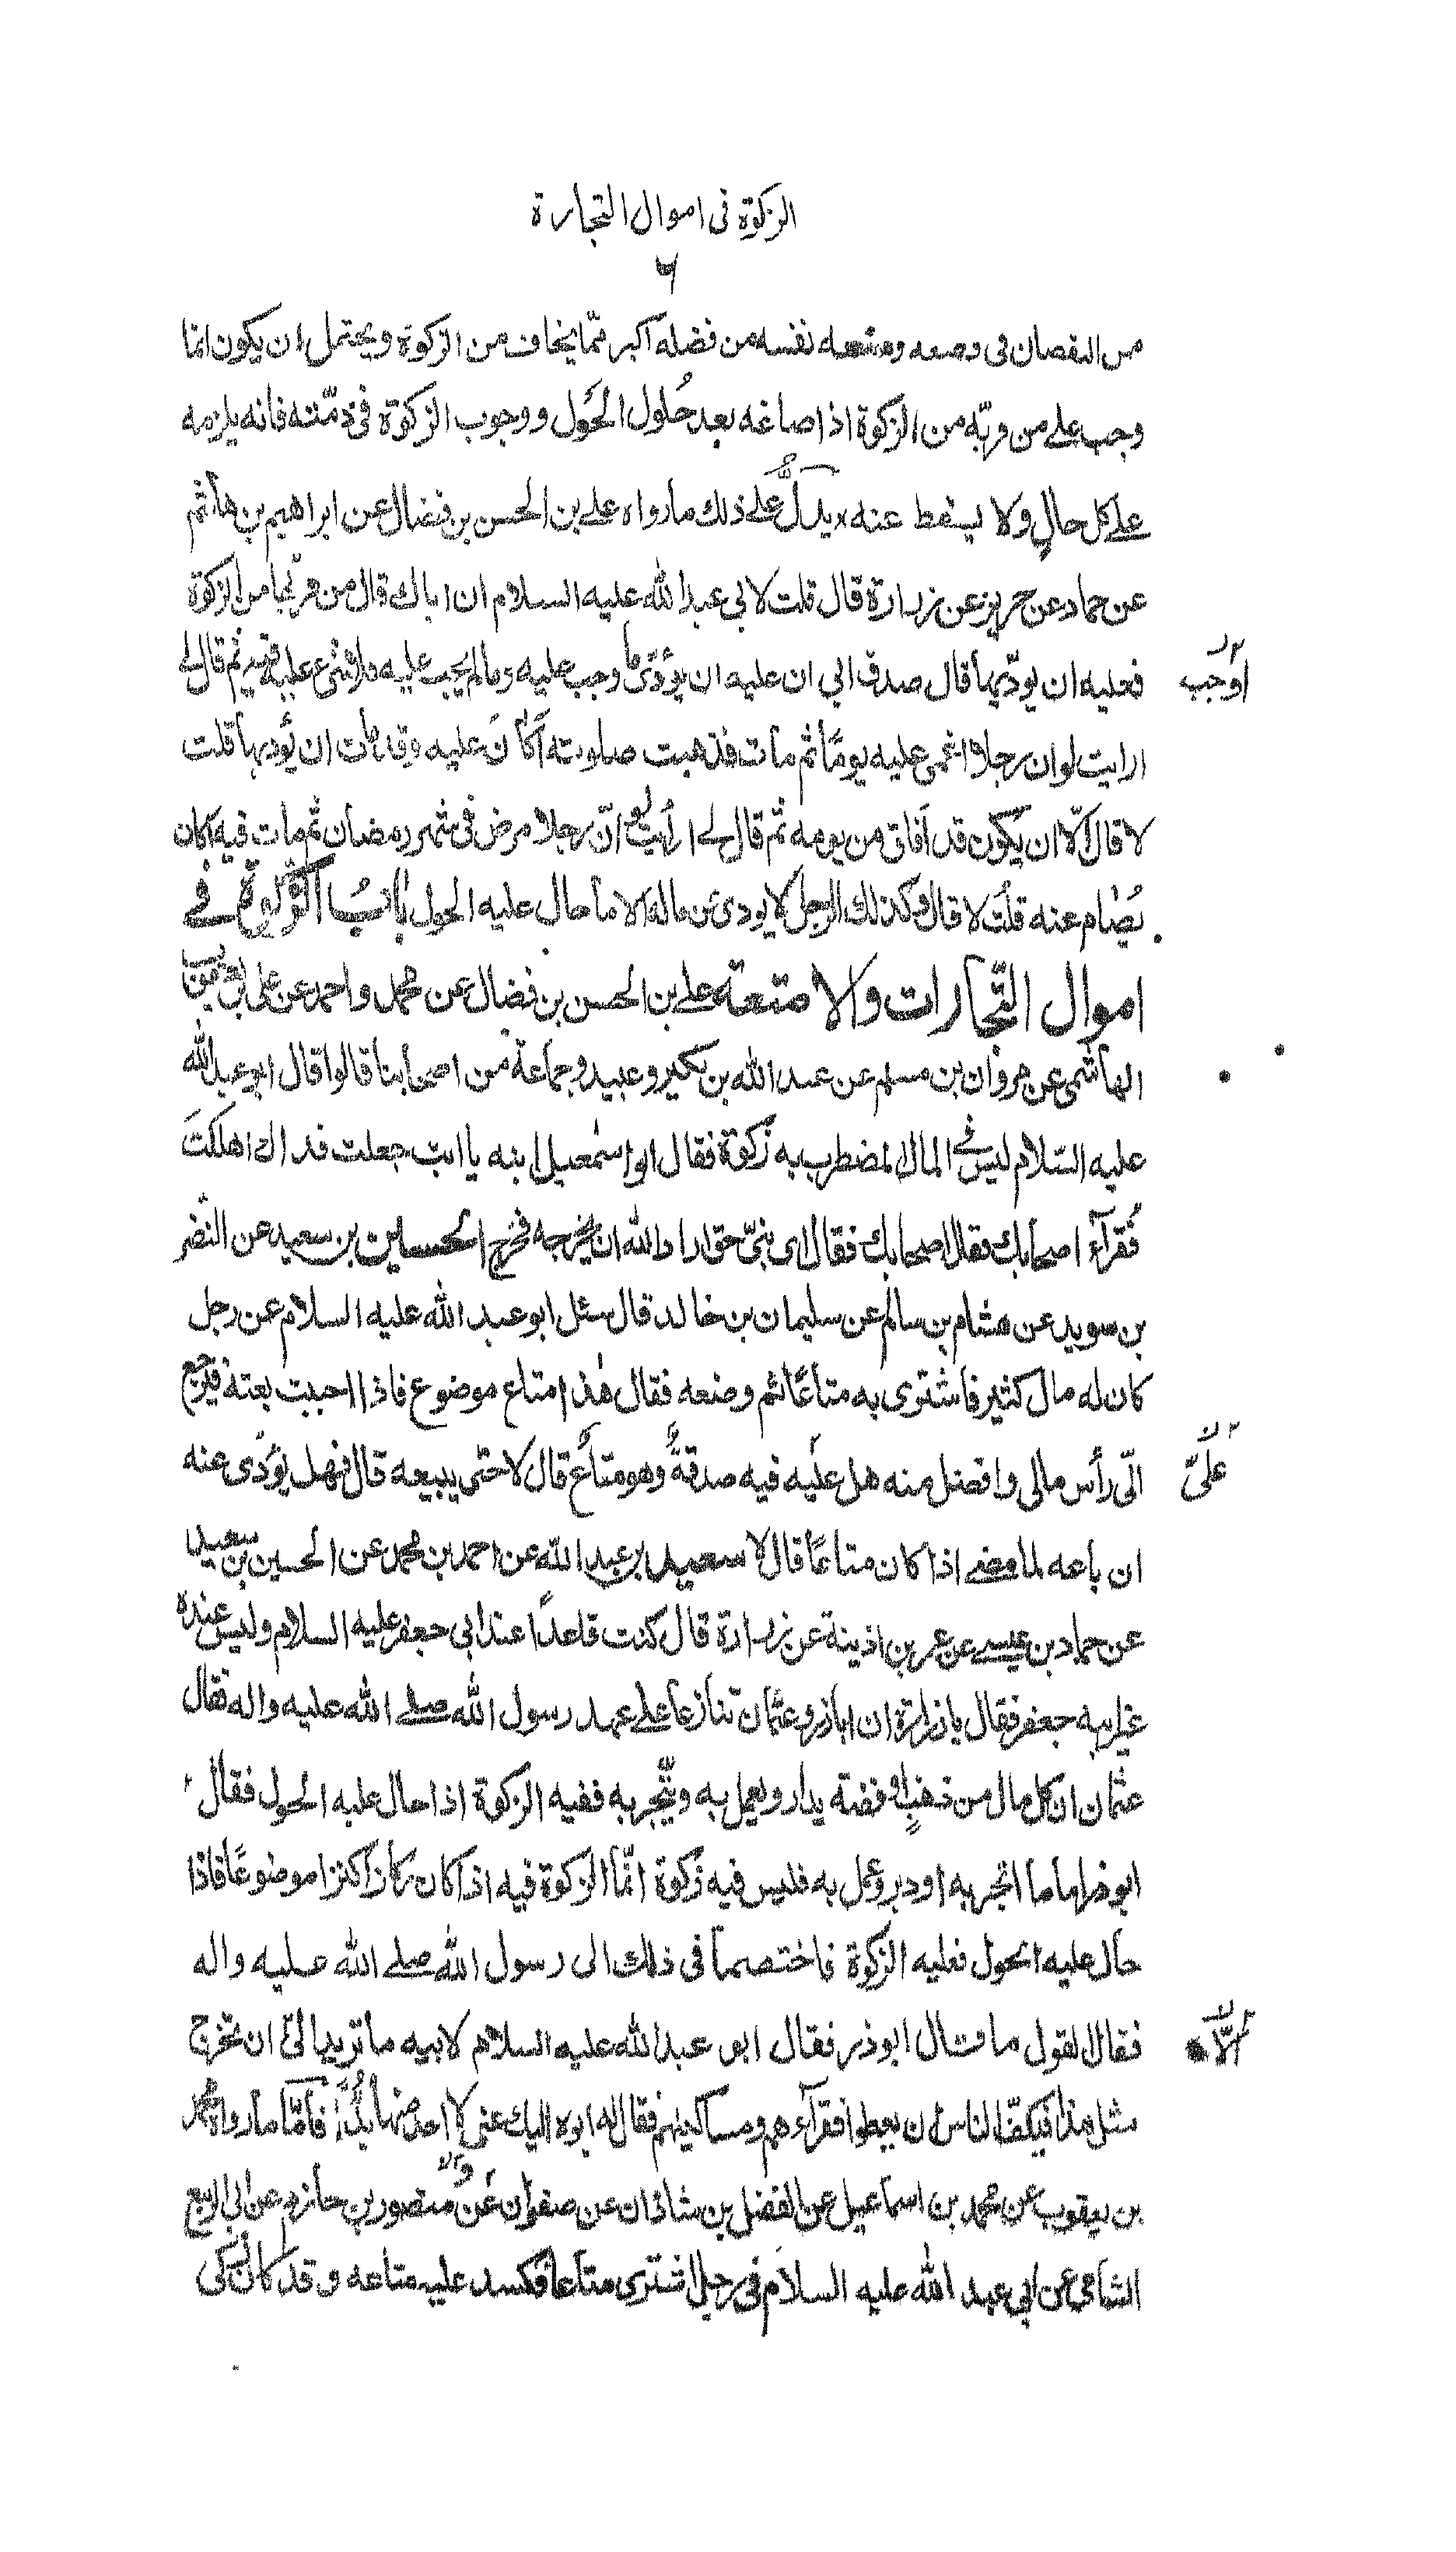 الزكوة فى اموال التجارة
٦
من النقصان فى وضعه ومنعه نفسه من فضله اكبر ممّا يخاف من الزكوة ويحتمل ان يكون انما
وجب على من فرّ به من الزكوة اذا صاغه بعد حُلول الحَول ووجوب الزكوة فى ذمّته فانه يلزمه
على كل حالٍ ولا يسقط عنه يدلُّ على ذلك ما رواه على بن الحسن بن فضال عن ابراهيم بن هاشم
عن حماد عن حريز عن زرارة قال قلت لابى عبد الله عليه السلام ان اباك قال من فرّ بها من الزكوة
فعليه ان يودّيها قال صدق ابي ان عليه ان يؤدّى ما وجب عليه وما لم يجب عليه فلا شئ عليه فيه ثم قال لى
اوجب
ارايت لو ان رجلا اغمى عليه يومًا ثم مات فذهبت صلوته أكانَ عليه وقد مات ان يؤديها قلت
لا قال الّا ان يكون قد أفاق من يومه ثم قال لى ارأيت لو انّ رجلا مرض فى شهر رمضان ثم مات فيه اكان
يُصٰام عنه قلتُ لا قال وكذلك الرجل لا يودى عن ماله الا ما حال عليه الحول بَابُ الزّكٰوة فى
اموال التّجارات والامتعة على بن الحسن بن فضال عن محمد واحمد عن على بن يعقوب
الهاشمى عن مروان بن مسلم عن عبد الله بن بكير وعبيد وجماعة من اصحابنا قالوا قال ابو عبد الله
عليه السّلام ليس فى المال المضطرب به زكوة فقال ابو اسمٰعيل ابنه يا ابت جعلت فداك اهلكتَ
فُقرآء اصحابك فقال اصحابك فقال اى بنىّ حق اراد الله ان يخرجه فخرج الحسين بن سعيد عن النضر
بن سويد عن هشام بن سالم عن سليمان بن خالد قال سئل ابو عبد الله عليه السلام عن رجل
كان له مال كثير فاشترى به متاعًا ثم وضعه فقال هٰذا متاع موضوع فاذا احببت بعته فيرجع
الىّ رأس مالى وافضل منه هل عليه فيه صدقةٌ وهو متاعٌ قال لا حتّى يبيعه قال فهل يؤدّى عنه
علىّ
ان باعه لما مضى اذا كان متاعًا قال لا سعيد بن عبد الله عن احمد بن محمد عن الحسين بن سعيد
عن حماد بن عيسى عن عمر بن اذينة عن زرارة قال كنت قاعدًا عند ابى جعفر عليه السلام وليس عنده
غير ابنه جعفر فقال يا زرارة ان اباذر وعثمان تنازعا على عهد رسول الله صلى الله عليه واله فقال
عثمان ان كل مال من ذهبٍ او فضة يدار ويعمل به ويتّجر به ففيه الزكوة اذا حال عليه الحول فقال
ابو ذر اما ما اتجر به او دير وعمل به فليس فيه زكوة انّما الزكوة فيه اذا كان ركازا كنزا موضوعًا فاذا
حال عليه الحول فعليه الزكوة فاختصما فى ذلك الى رسول الله صلى الله عليه واله
فقال القول ما قال ابوذر فقال ابو عبد الله عليه السلام لابيه ما تريد الى ان تخرج
الّا
مثل هذا فيكفّ الناس ان يعطوا فقرآءهم ومساكينهم فقال له ابوه اليك عنى لا اجد منها بُدّاً فاَمّا ما رواه محمد
بن يعقوب عن محمد بن اسماعيل عن الفضل بن شاذان عن صفوان عن منصور بن حازم عن ابى الربيع
الشامى عن ابى عبد الله عليه السلام فى رجل اشترى متاعًا فكسد عليه متاعه وقد كان زكى